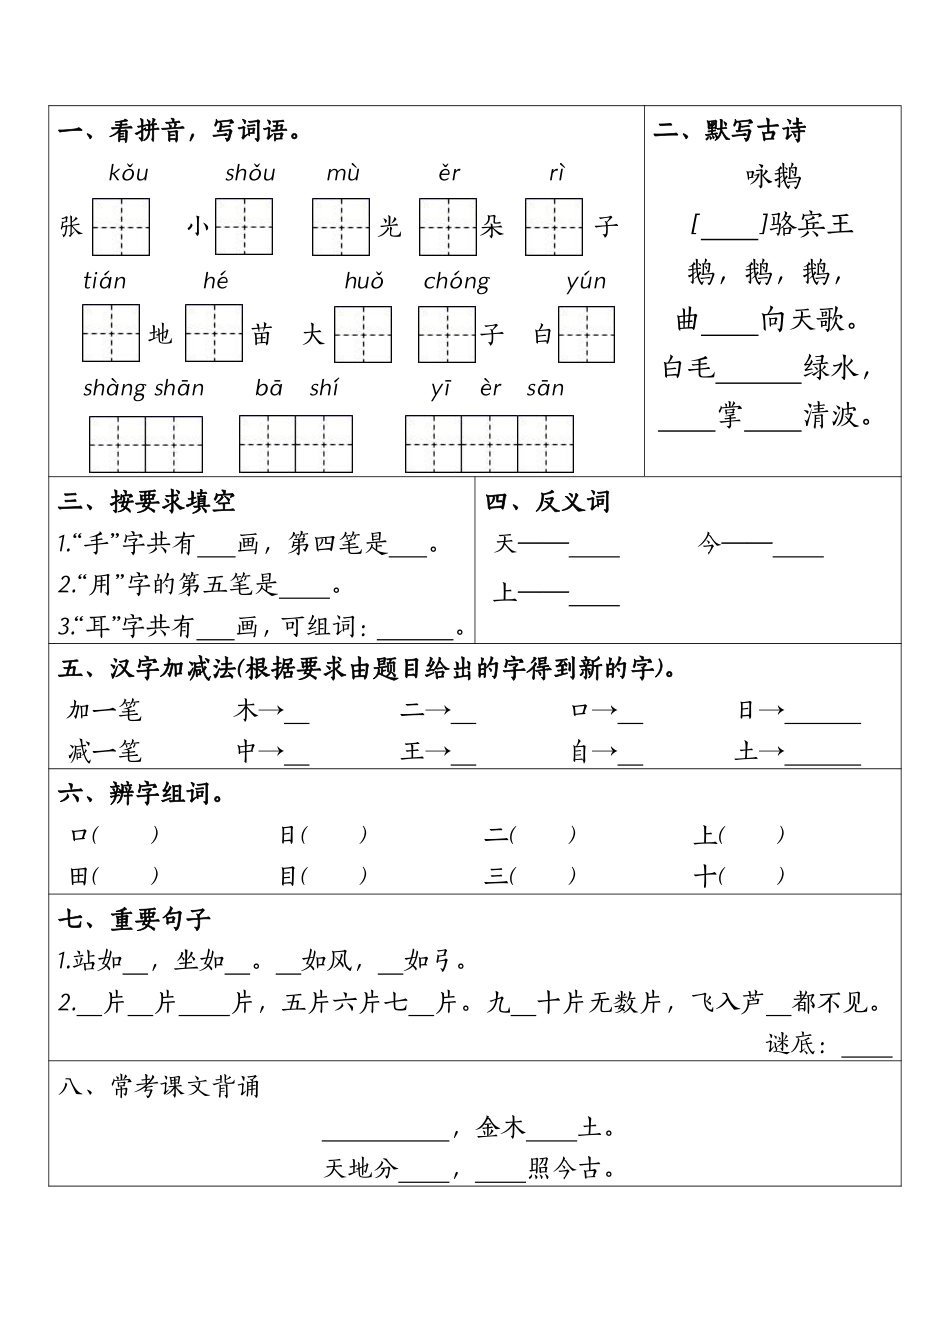 一、看拼音，写词语。
kǒu shǒu mù ěr rì
张 小 光 朵 子
tián hé huǒ chóng yún
地 苗 大 子 白
shàng shān bā shí yī èr sān
二、默写古诗
咏鹅
[____]骆宾王
鹅，鹅，鹅，
曲____向天歌。
白毛______绿水，
____掌____清波。
三、按要求填空
1.“手”字共有___画，第四笔是___。
2.“用”字的第五笔是____。
3.“耳”字共有___画，可组词：______。
四、反义词
天——____ 今——____
上——____
五、汉字加减法(根据要求由题目给出的字得到新的字)。
加一笔 木→__ 二→__ 口→__ 日→______
减一笔 中→__ 王→__ 自→__ 土→______
六、辨字组词。
口( ) 日( ) 二( ) 上( )
田( ) 目( ) 三( ) 十( )
七、重要句子
1.站如__，坐如__。__如风，__如弓。
2.__片__片____片，五片六片七__片。九__十片无数片，飞入芦__都不见。
谜底：____
八、常考课文背诵
__________，金木____土。
天地分____，____照今古。